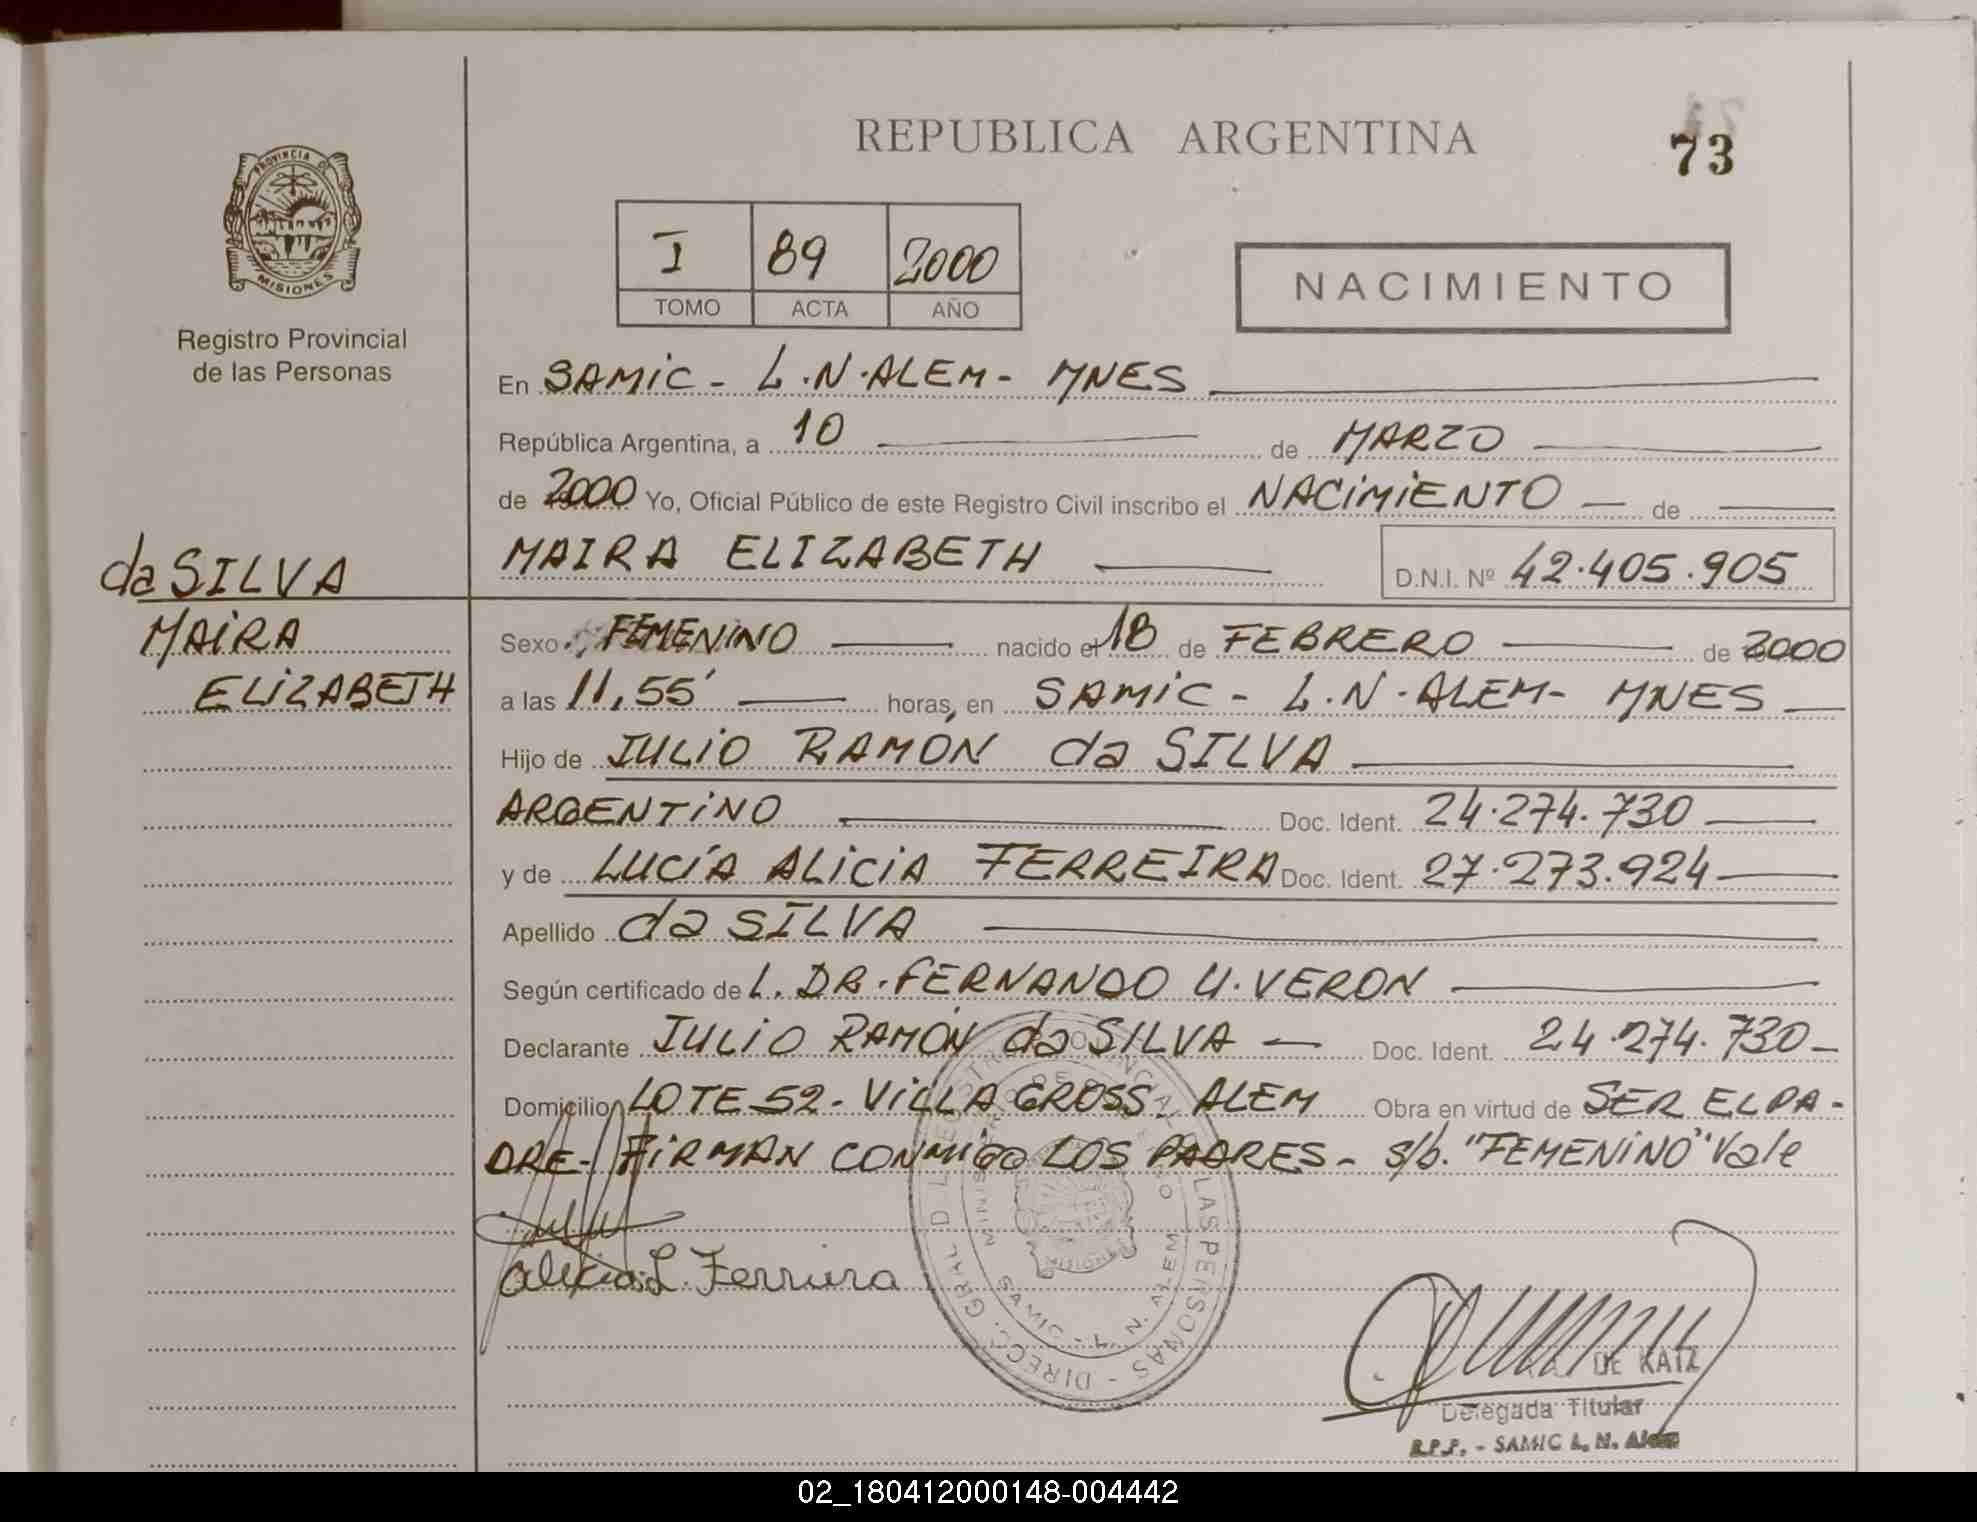 REPUBLICA ARGENTINA
73
PROVINCIA DE
MISIONES
Registro Provincial
de las Personas
I 89 2000
TOMO ACTA AÑO
NACIMIENTO
En SAMIC - L.N.ALEM - MNES
República Argentina, a 10 de MARZO
de 2000 Yo, Oficial Público de este Registro Civil inscribo el NACIMIENTO de
MAIRA ELIZABETH D.N.I. Nº 42.405.905
da SILVA
MAIRA
ELIZABETH
Sexo FEMENINO nacido el 18 de FEBRERO de 2000
a las 11,55' horas, en SAMIC - L.N.ALEM - MNES
Hijo de JULIO RAMON da SILVA
ARGENTINO Doc. Ident. 24.274.730
y de LUCÍA ALICIA FERREIRA Doc. Ident. 27.273.924
Apellido da SILVA
Según certificado de L. DR. FERNANDO U. VERON
Declarante JULIO RAMÓN da SILVA Doc. Ident. 24.274.730
Domicilio LOTE 52 - VILLA GROSS - ALEM Obra en virtud de SER EL PA-
DRE - FIRMAN CONMIGO LOS PADRES - s/b. "FEMENINO" Vale
Alicia L. Ferreira
DE KATZ
Delegada Titular
R.P.P. - SAMIC L. N. Alem
02_180412000148-004442